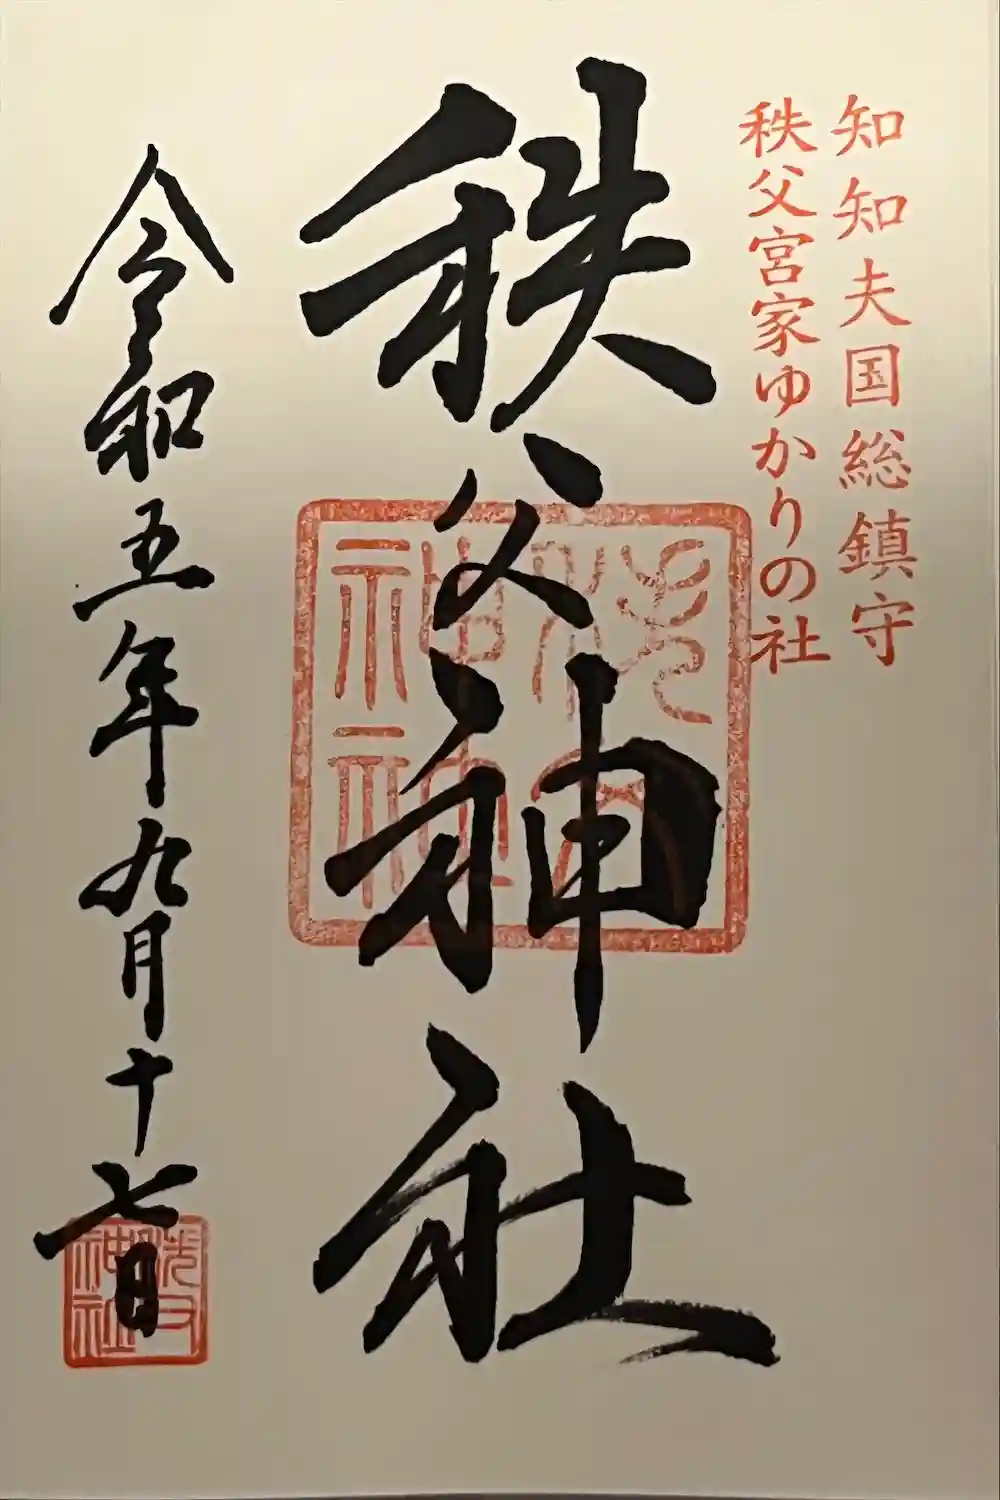 知知夫国総鎮守
秩父宮家ゆかりの社
秩父神社
令和五年九月十七日
秩父神社
秩父神社